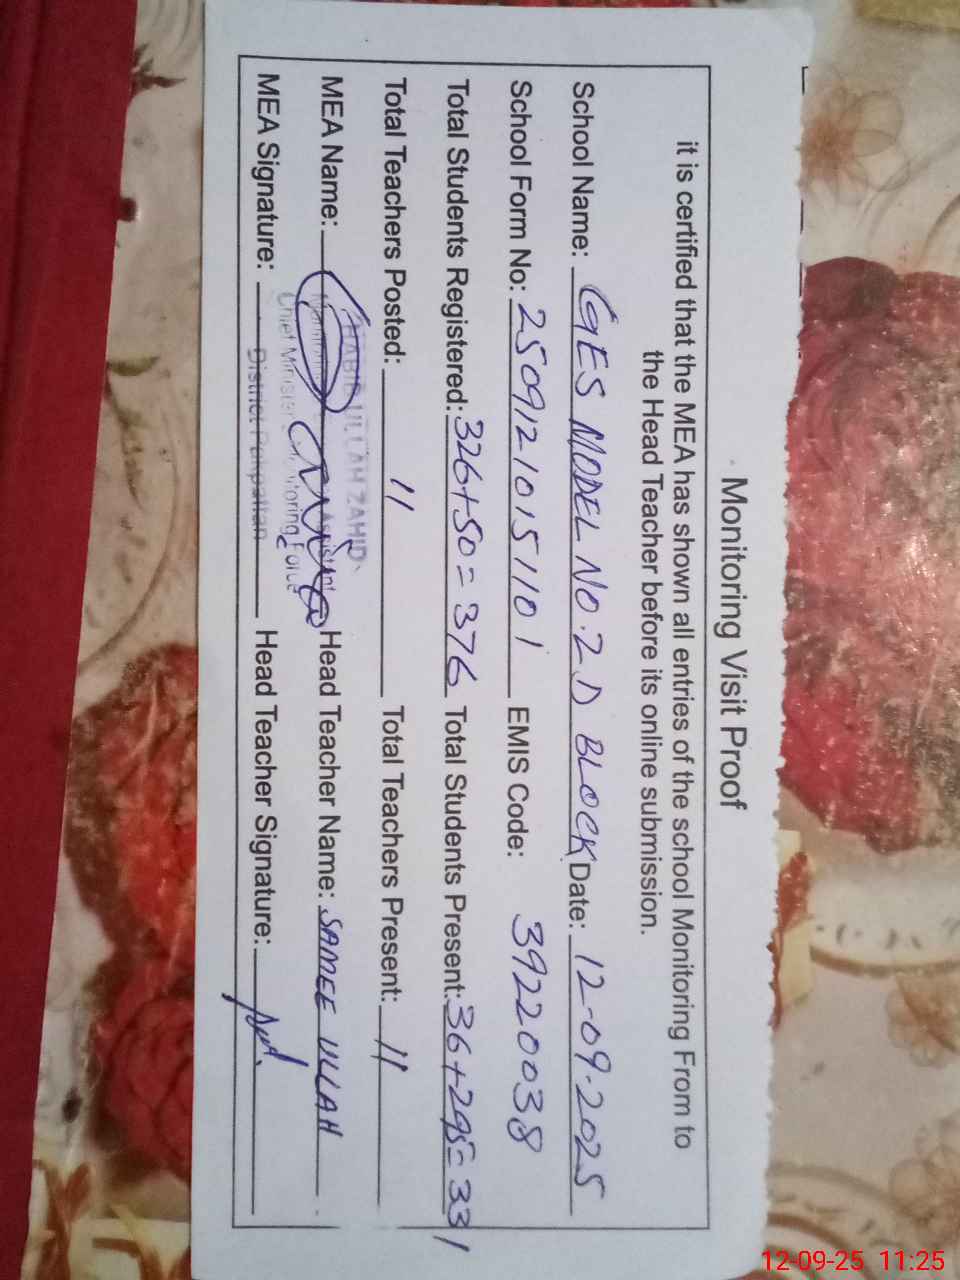 Monitoring Visit Proof
it is certified that the MEA has shown all entries of the school Monitoring From to
the Head Teacher before its online submission.
School Name: GES MODEL NO.2 D BLOCK Date: 12-09-2025
School Form No: 2509121015 1101 EMIS Code: 39220038
Total Students Registered: 326+50=376 Total Students Present: 36+295=331
Total Teachers Posted: 11 Total Teachers Present: 11
HABIB ULLAH ZAHID
MEA Name: Head Teacher Name: SAMEE ULLAH
Chief Minister Monitoring Force
MEA Signature: District Pakpattan Head Teacher Signature:
12-09-25 11:25